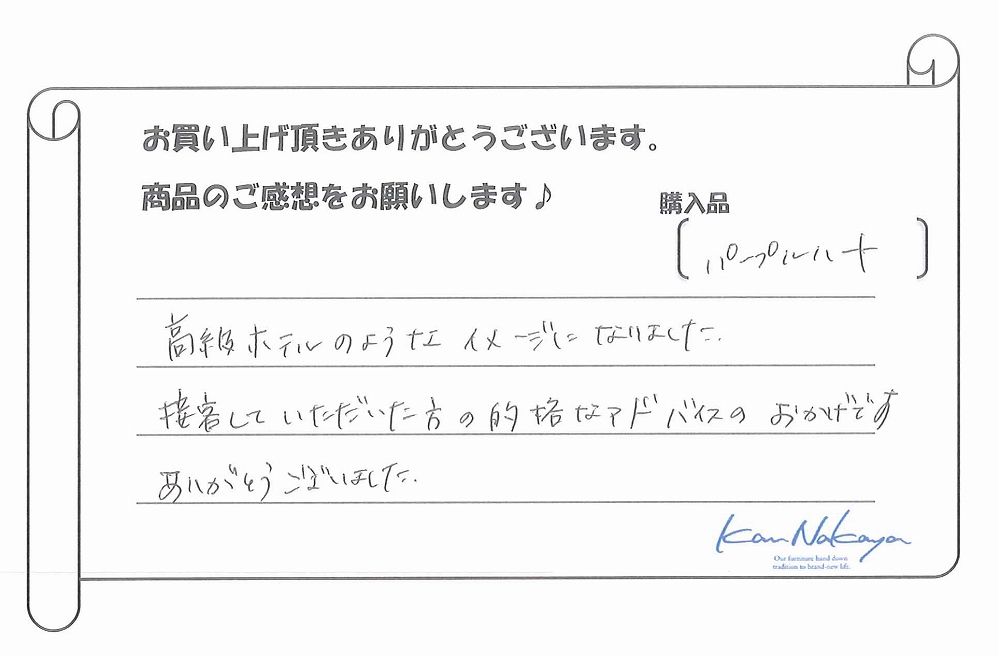 お買い上げ頂きありがとうございます。
商品のご感想をお願いします♪
購入品
〔パープルハート〕
高級ホテルのようなイメージになりました.
接客していただいた方の的格なアドバイスのおかげです
ありがとうございました.
Kan Nakaya
Our furniture hand down
tradition to brand-new life.